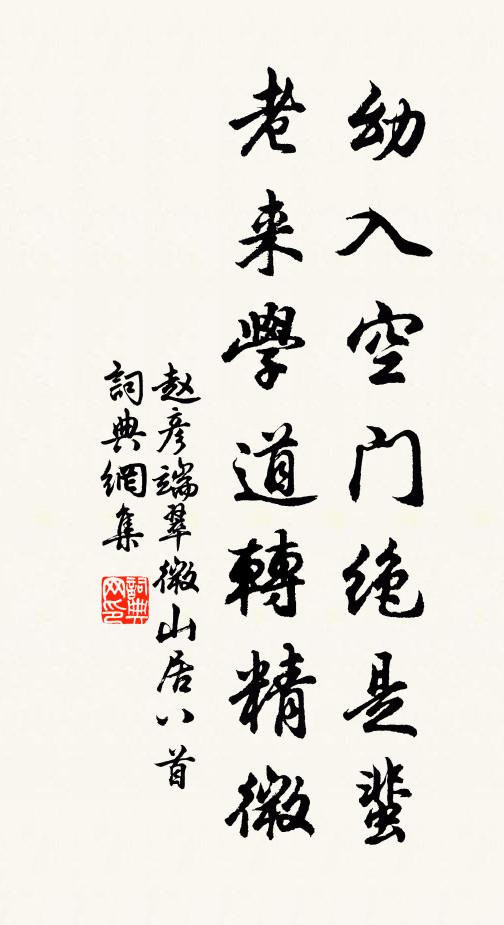 幼入空门绝是蜚
老来學道轉精微
赵彦端翠微山居八首
詞典網集
詞典网印